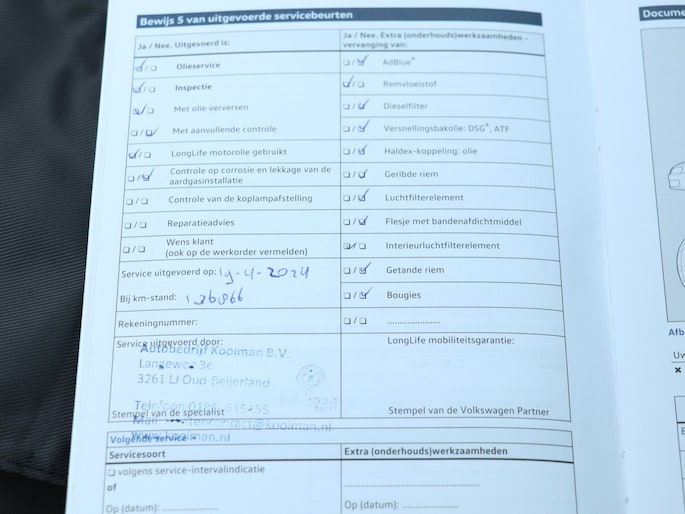 Bewijs 5 van uitgevoerde servicebeurten
Docume
Ja / Nee. Uitgevoerd is:
Ja / Nee. Extra (onderhouds)werkzaamheden - vervanging van:
Olieservice
AdBlue®
Inspectie
Remvloeistof
Met olie verversen
Dieselfilter
Met aanvullende controle
Versnellingsbakolie: DSG®, ATF
LongLife motorolie gebruikt
Haldex-koppeling: olie
Controle op corrosie en lekkage van de aardgasinstallatie
Geribde riem
Controle van de koplampafstelling
Luchtfilterelement
Reparatieadvies
Flesje met bandenafdichtmiddel
Wens klant
(ook op de werkorder vermelden)
Interieurluchtfilterelement
Service uitgevoerd op: 19-4-2024
Getande riem
Bij km-stand: 136866
Bougies
Rekeningnummer:
Service uitgevoerd door:
LongLife mobiliteitsgarantie:
Autobedrijf Kooiman B.V.
Langeweg 3c
3261 LJ Oud-Beijerland
Stempel van de specialist
Stempel van de Volkswagen Partner
Volgende service
Servicesoort
Extra (onderhouds)werkzaamheden
volgens service-intervalindicatie
of
Op (datum):
Op (datum):
Afb